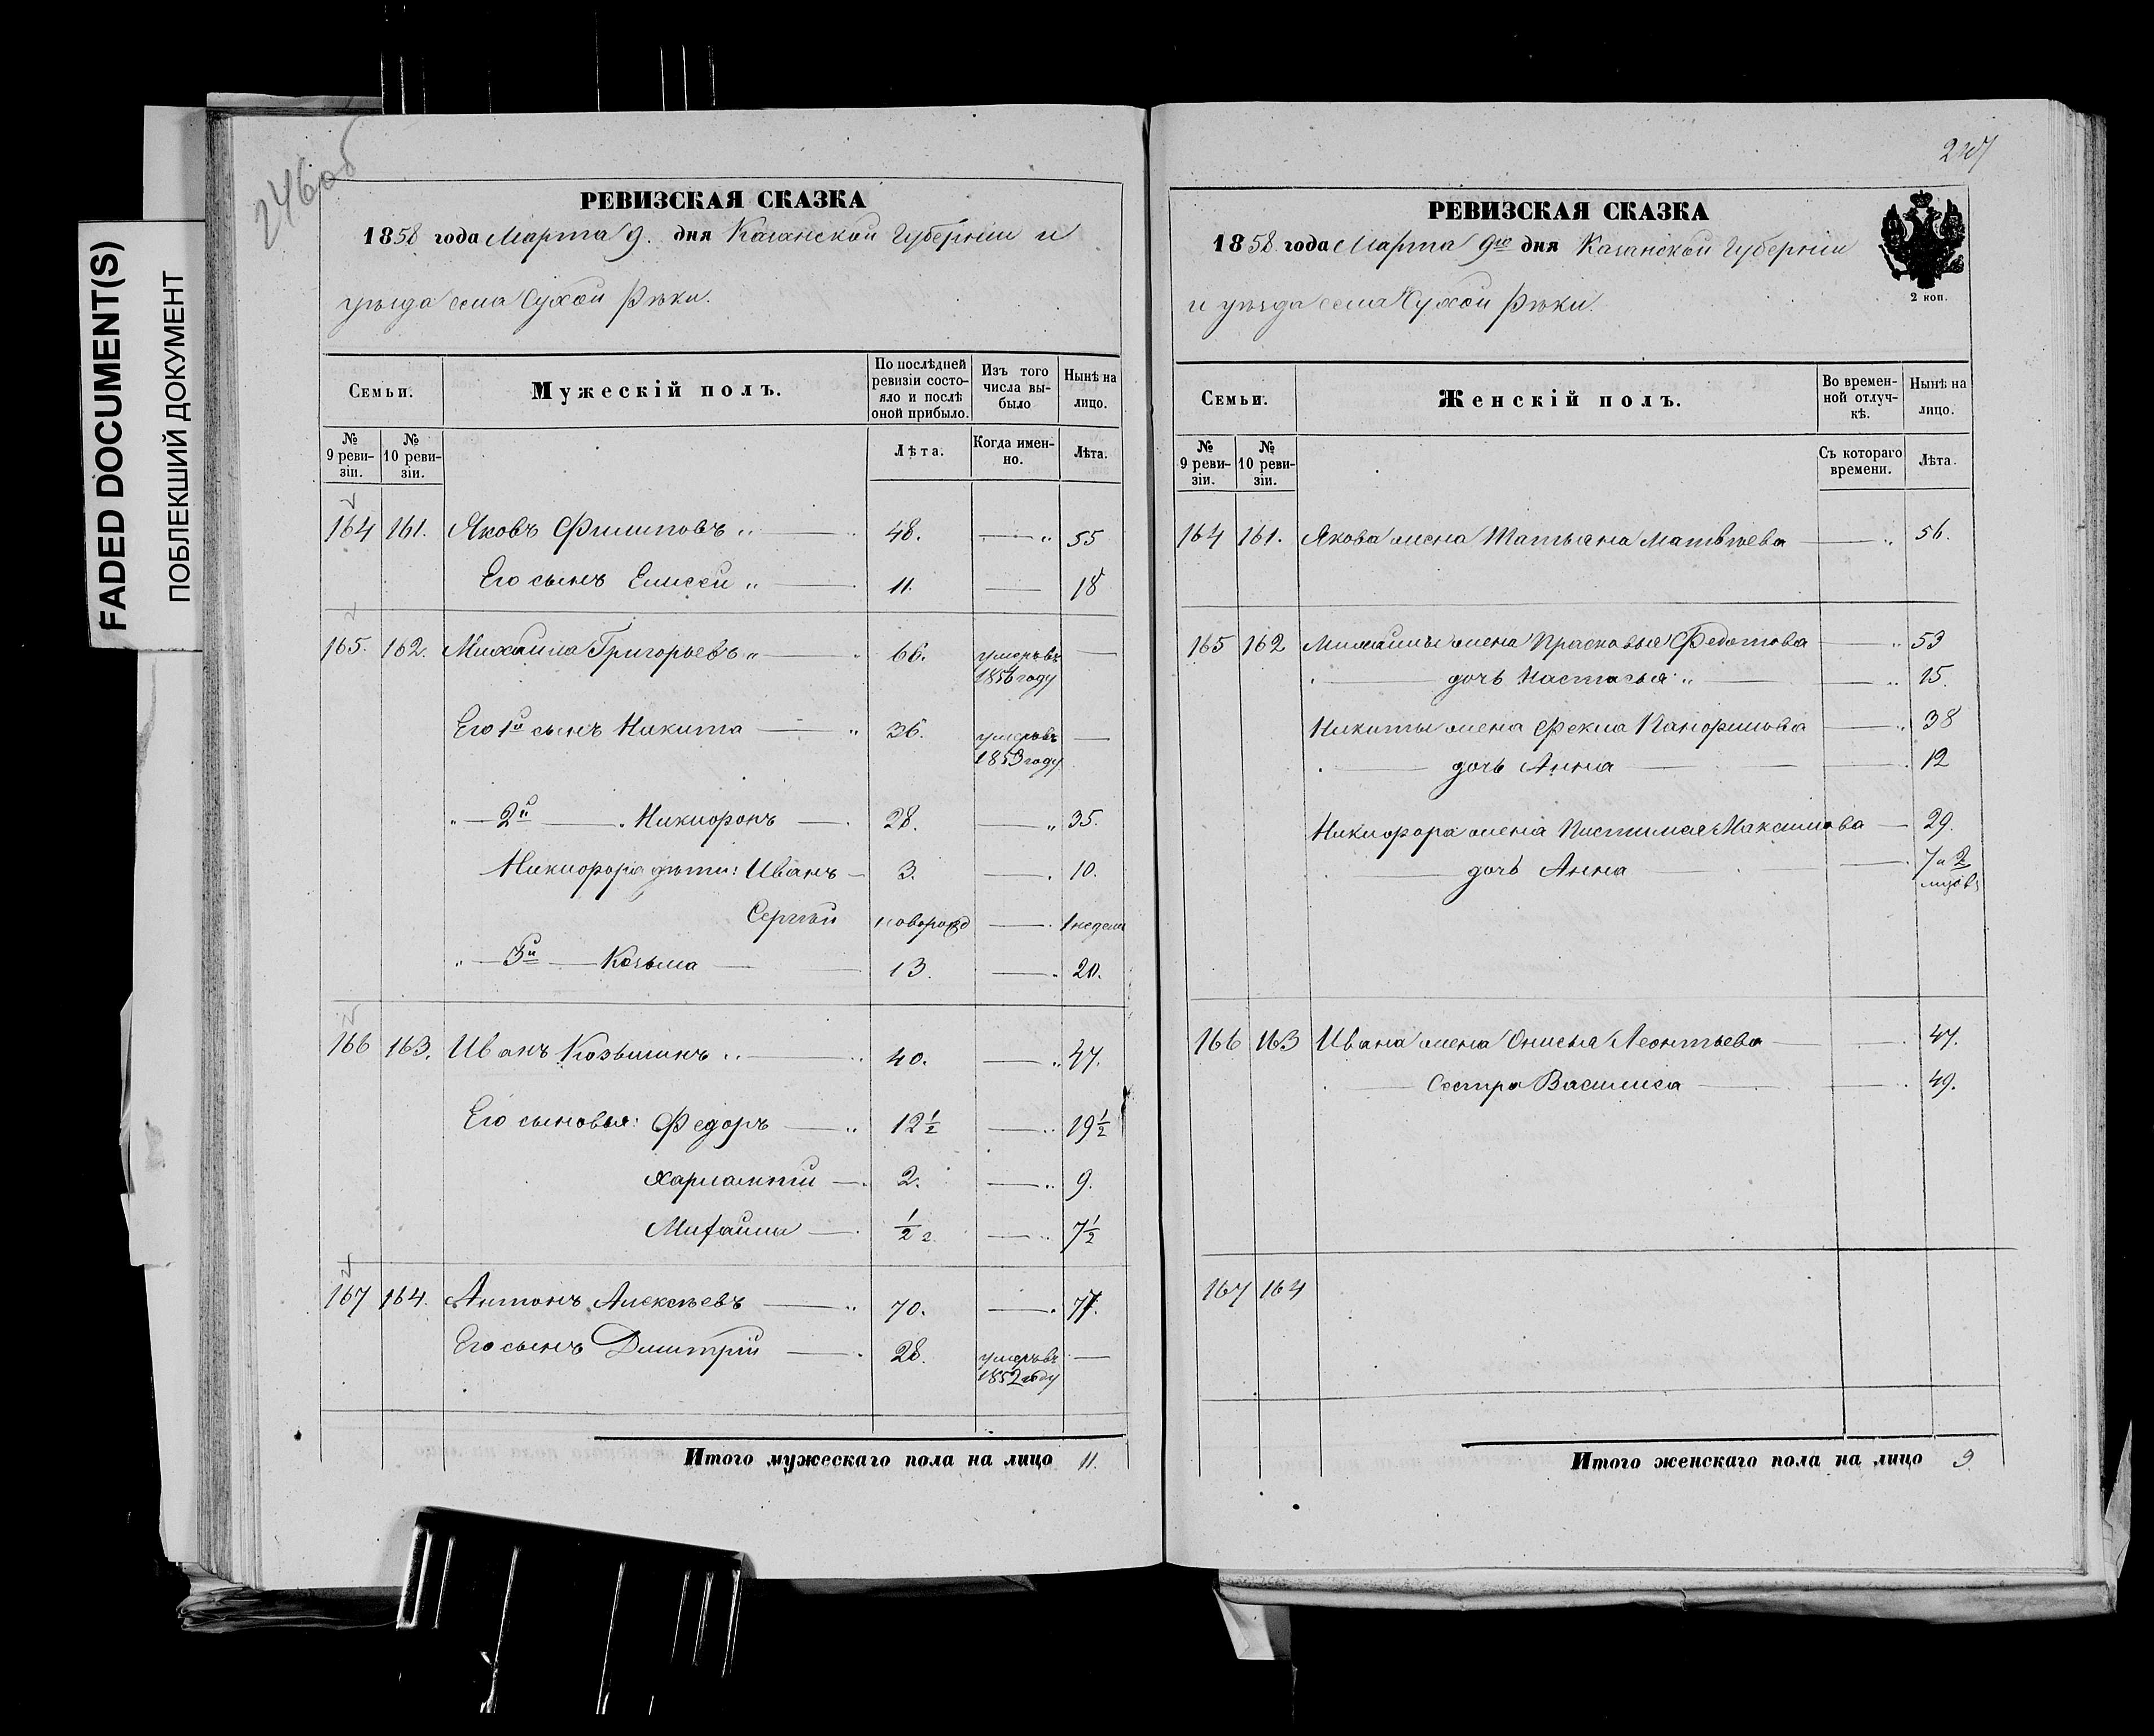 FADED DOCUMENT(S)
ПОБЛЕКШИЙ ДОКУМЕНТ
246об
РЕВИЗСКАЯ СКАЗКА
1858 года Марта 9. дня Казанской Губерніи и
уѣзда села Сухой Рѣки.
Семьи.
Мужескій полъ.
По послѣдней ревизіи состо-
яло и послѣ оной прибыло.
Изъ того числа вы-
было
Нынѣ на лицо.
№ 9 реви-
зіи.
№ 10 реви-
зіи.
Лѣта.
Когда имен-
но.
Лѣта.
164 161. Яковъ Филиповъ 48. 55
Его сынъ Елисей 11. 18
165. 162. Михаила Григорьевъ 66. умеръ въ
1856 году
Его 1й сынъ Никита 36. умеръ въ
1853 году
2й Никифоръ 28. 35.
Никифора дѣти: Иванъ 3. 10.
Сергѣй новорожд 1 недели
3й Козьма 13. 20.
166 163. Иванъ Козьминъ 40. 47.
Его сыновья: Федоръ 12 1/2 19 1/2
Харлампій 2. 9.
Михайла 1/2 г. 7 1/2
167 164. Антонъ Алексѣевъ 70. 77.
Его сынъ Дмитрій 28. умеръ въ
1852 году
Итого мужескаго пола на лицо 11.
247
РЕВИЗСКАЯ СКАЗКА
1858 года Марта 9го дня Казанской Губерніи
и уѣзда села Сухой Рѣки.
2 коп.
Семьи.
Женскій полъ.
Во времен-
ной отлуч-
кѣ.
Нынѣ на лицо.
№ 9 реви-
зіи.
№ 10 реви-
зіи.
Съ котораго времени.
Лѣта.
164 161. Якова жена Татьяна Матвѣева 56.
165 162 Михаилы жена Прасковья Федотова 53
дочь Настасья 15.
Никиты жена Фекла Панфилова 38
дочь Анна 12
Никифора жена Пистимея Максимова 29.
дочь Анна 7 и 2
мцовъ
166 163 Ивана жена Онисья Леонтьева 47.
Сестра Василиса 49.
167 164
Итого женскаго пола на лицо 9